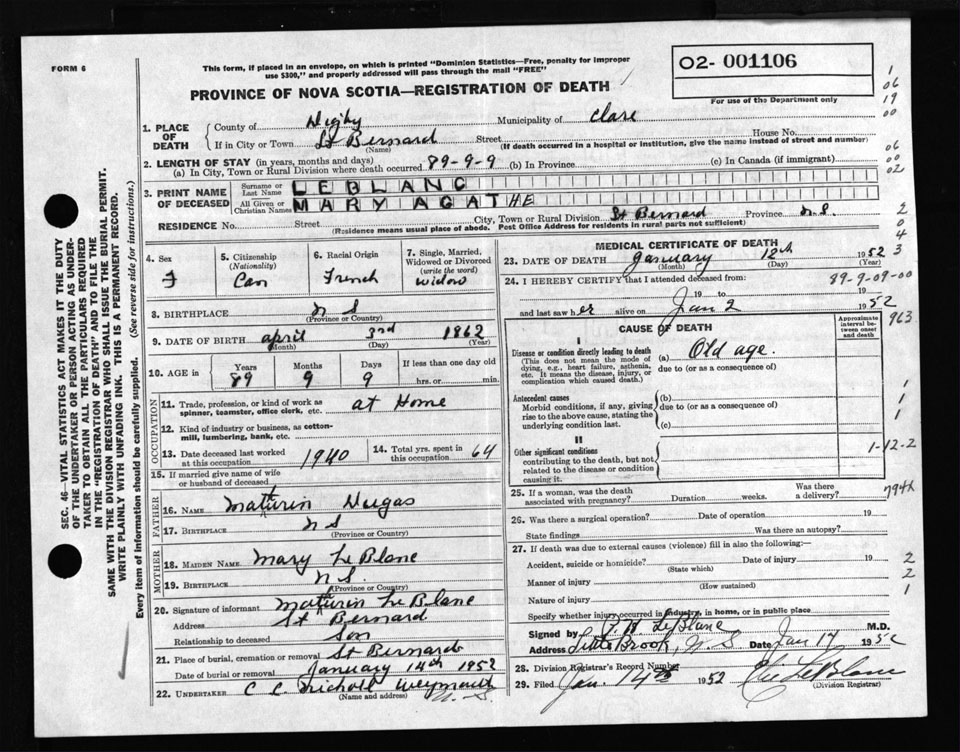 FORM 6
This form, if placed in an envelope, on which is printed "Dominion Statistics—Free, penalty for improper
use $300," and properly addressed will pass through the mail "FREE"
02- 001106
For use of the Department only
PROVINCE OF NOVA SCOTIA—REGISTRATION OF DEATH
1. PLACE OF DEATH
County of Digby Municipality of Clare
If in City or Town St Bernard Street House No.
(Name) (If death occurred in a hospital or institution, give the name instead of street and number)
2. LENGTH OF STAY (in years, months and days)
(a) In City, Town or Rural Division where death occurred 89-9-9 (b) In Province (c) In Canada (if immigrant)
3. PRINT NAME OF DECEASED
Surname or Last Name LEBLANC
All Given or Christian Names MARY AGATHE
RESIDENCE No. Street City, Town or Rural Division St Bernard Province N.S.
(Residence means usual place of abode. Post Office Address for residents in rural parts not sufficient)
4. Sex F
5. Citizenship (Nationality) Can
6. Racial Origin French
7. Single, Married, Widowed or Divorced (write the word) widow
8. BIRTHPLACE N S
(Province or Country)
9. DATE OF BIRTH April 3rd 1862
(Month) (Day) (Year)
10. AGE in Years 89 Months 9 Days 9 If less than one day old hrs. or min.
OCCUPATION
11. Trade, profession, or kind of work as spinner, teamster, office clerk, etc. at Home
12. Kind of industry or business, as cotton-mill, lumbering, bank, etc.
13. Date deceased last worked at this occupation 1940
14. Total yrs. spent in this occupation 64
15. If married give name of wife or husband of deceased
FATHER
16. NAME Mathurin
17. BIRTHPLACE N S
(Province or Country)
MOTHER
18. MAIDEN NAME Mary LeBlanc
19. BIRTHPLACE N S.
(Province or Country)
20. Signature of informant Mathurin LeBlanc
Address St Bernard
Relationship to deceased Son
21. Place of burial, cremation or removal St Bernard
Date of burial or removal January 14th 1952
22. UNDERTAKER C C Nicholl Weymouth N. S.
(Name and address)
MEDICAL CERTIFICATE OF DEATH
23. DATE OF DEATH January 12th 1952
(Month) (Day) (Year)
24. I HEREBY CERTIFY that I attended deceased from: 89-9-09-00
19 to
and last saw her alive on Jan 2 1952
CAUSE OF DEATH
Approximate interval between onset and death
963
I
Disease or condition directly leading to death (a) Old age.
(This does not mean the mode of dying, e.g., heart failure, asthenia, etc. It means the disease, injury, or complication which caused death.)
due to (or as a consequence of)
Antecedent causes (b)
Morbid conditions, if any, giving rise to the above cause, stating the underlying condition last.
due to (or as a consequence of)
(c)
II
Other significant conditions contributing to the death, but not related to the disease or condition causing it.
1-12-2
794X
25. If a woman, was the death associated with pregnancy? Duration weeks. Was there a delivery?
26. Was there a surgical operation? Date of operation 19
State findings Was there an autopsy?
27. If death was due to external causes (violence) fill in also the following:—
Accident, suicide or homicide? Date of injury 19
(State which)
Manner of injury
(How sustained)
Nature of injury
Specify whether injury occurred in industry, in home, or in public place
Signed by LeBlanc M.D.
Address Little Brook, N. S Date Jan 17 1952
28. Division Registrar's Record Number
29. Filed Jan. 14th 1952 LeBlanc
(Division Registrar)
SEC. 46—VITAL STATISTICS ACT MAKES IT THE DUTY
OF THE UNDERTAKER OR PERSON ACTING AS UNDER-
TAKER TO OBTAIN ALL THE PARTICULARS REQUIRED
IN THE "REGISTRATION OF DEATH" AND TO FILE THE
SAME WITH THE DIVISION REGISTRAR WHO SHALL ISSUE THE BURIAL PERMIT.
WRITE PLAINLY WITH UNFADING INK. THIS IS A PERMANENT RECORD.
Every item of information should be carefully supplied. (See reverse side for instructions.)
1
06
19
00
06
00
02
2
0
4
3
1
1
1
2
2
1